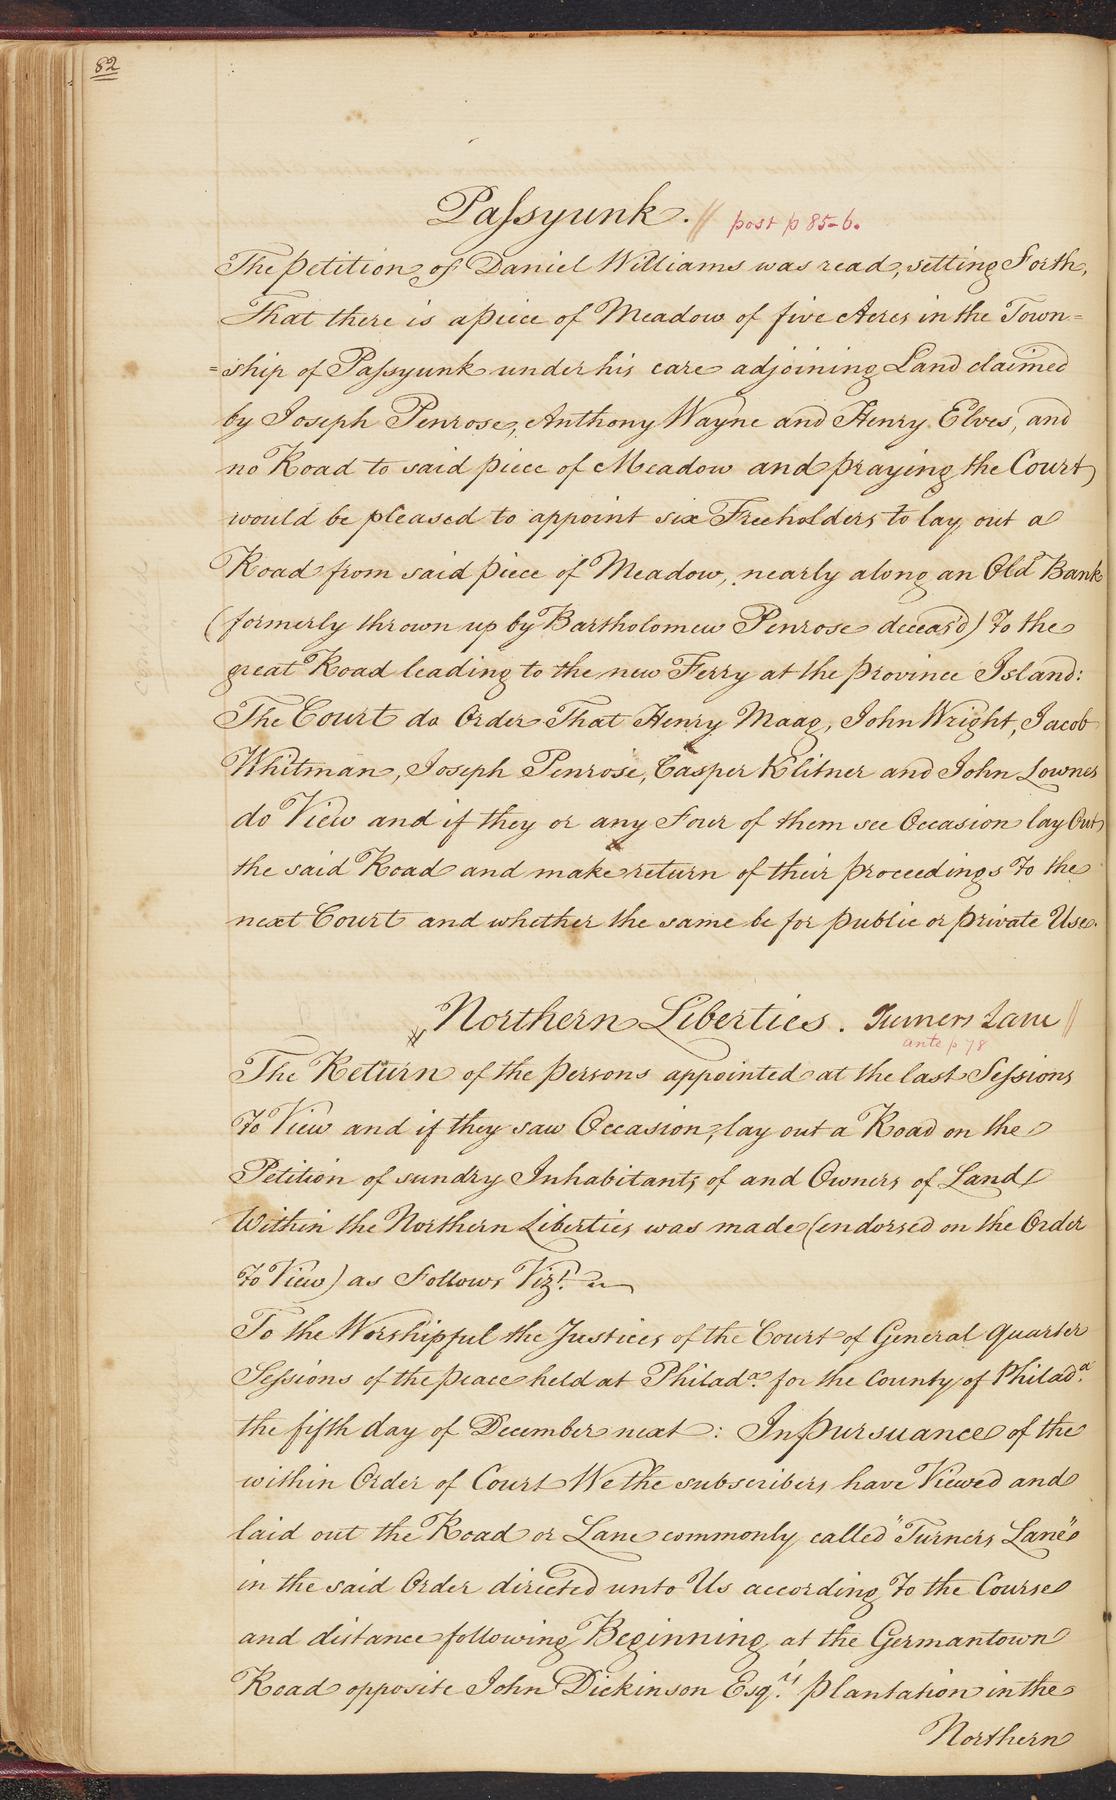 82
Paſsyunk. // post p 85-6.
The petition of Daniel Williams was read, setting Forth,
That there is a piece of Meadow of five Acres in the Town=
=ship of Paſsyunk under his care adjoining Land claimed
by Joseph Penrose, Anthony Wayne and Henry Elves, and
no Road to said piece of Meadow and praying the Court
would be pleased to appoint six Freeholders to lay out a
Road from said piece of Meadow, nearly along an Old Bank
(formerly thrown up by Bartholomew Penrose deceas'd) To the
great Road leading to the new Ferry at the province Island:
The Court do Order That Henry Maag, John Wright, Jacob
Whitman, Joseph Penrose, Casper Klitner and John Lownes
do View and if they or any Four of them see Occasion lay Out
the said Road and make return of their proceedings To the
next Court and whether the same be for public or private Use.
Northern Liberties. Turners Lane //
ante p 78
The Return of the persons appointed at the last Seſsions
To View and if they saw Occasion, lay out a Road on the
Petition of sundry Inhabitants of and Owners of Land
Within the Northern Liberties was made (endorsed on the Order
To View) as Follows Vizt.
To the Worshipful the Justices of the Court of General quarter
Seſsions of the peace held at Philada. for the County of Philada.
the fifth day of December next: In pursuance of the
within Order of Court We the subscribers have Viewed and
laid out the Road or Lane commonly called "Turners Lane"
in the said Order directed unto Us according To the Course
and distance following Beginning at the Germantown
Road opposite John Dickinson Esqr's plantation in the
Northern